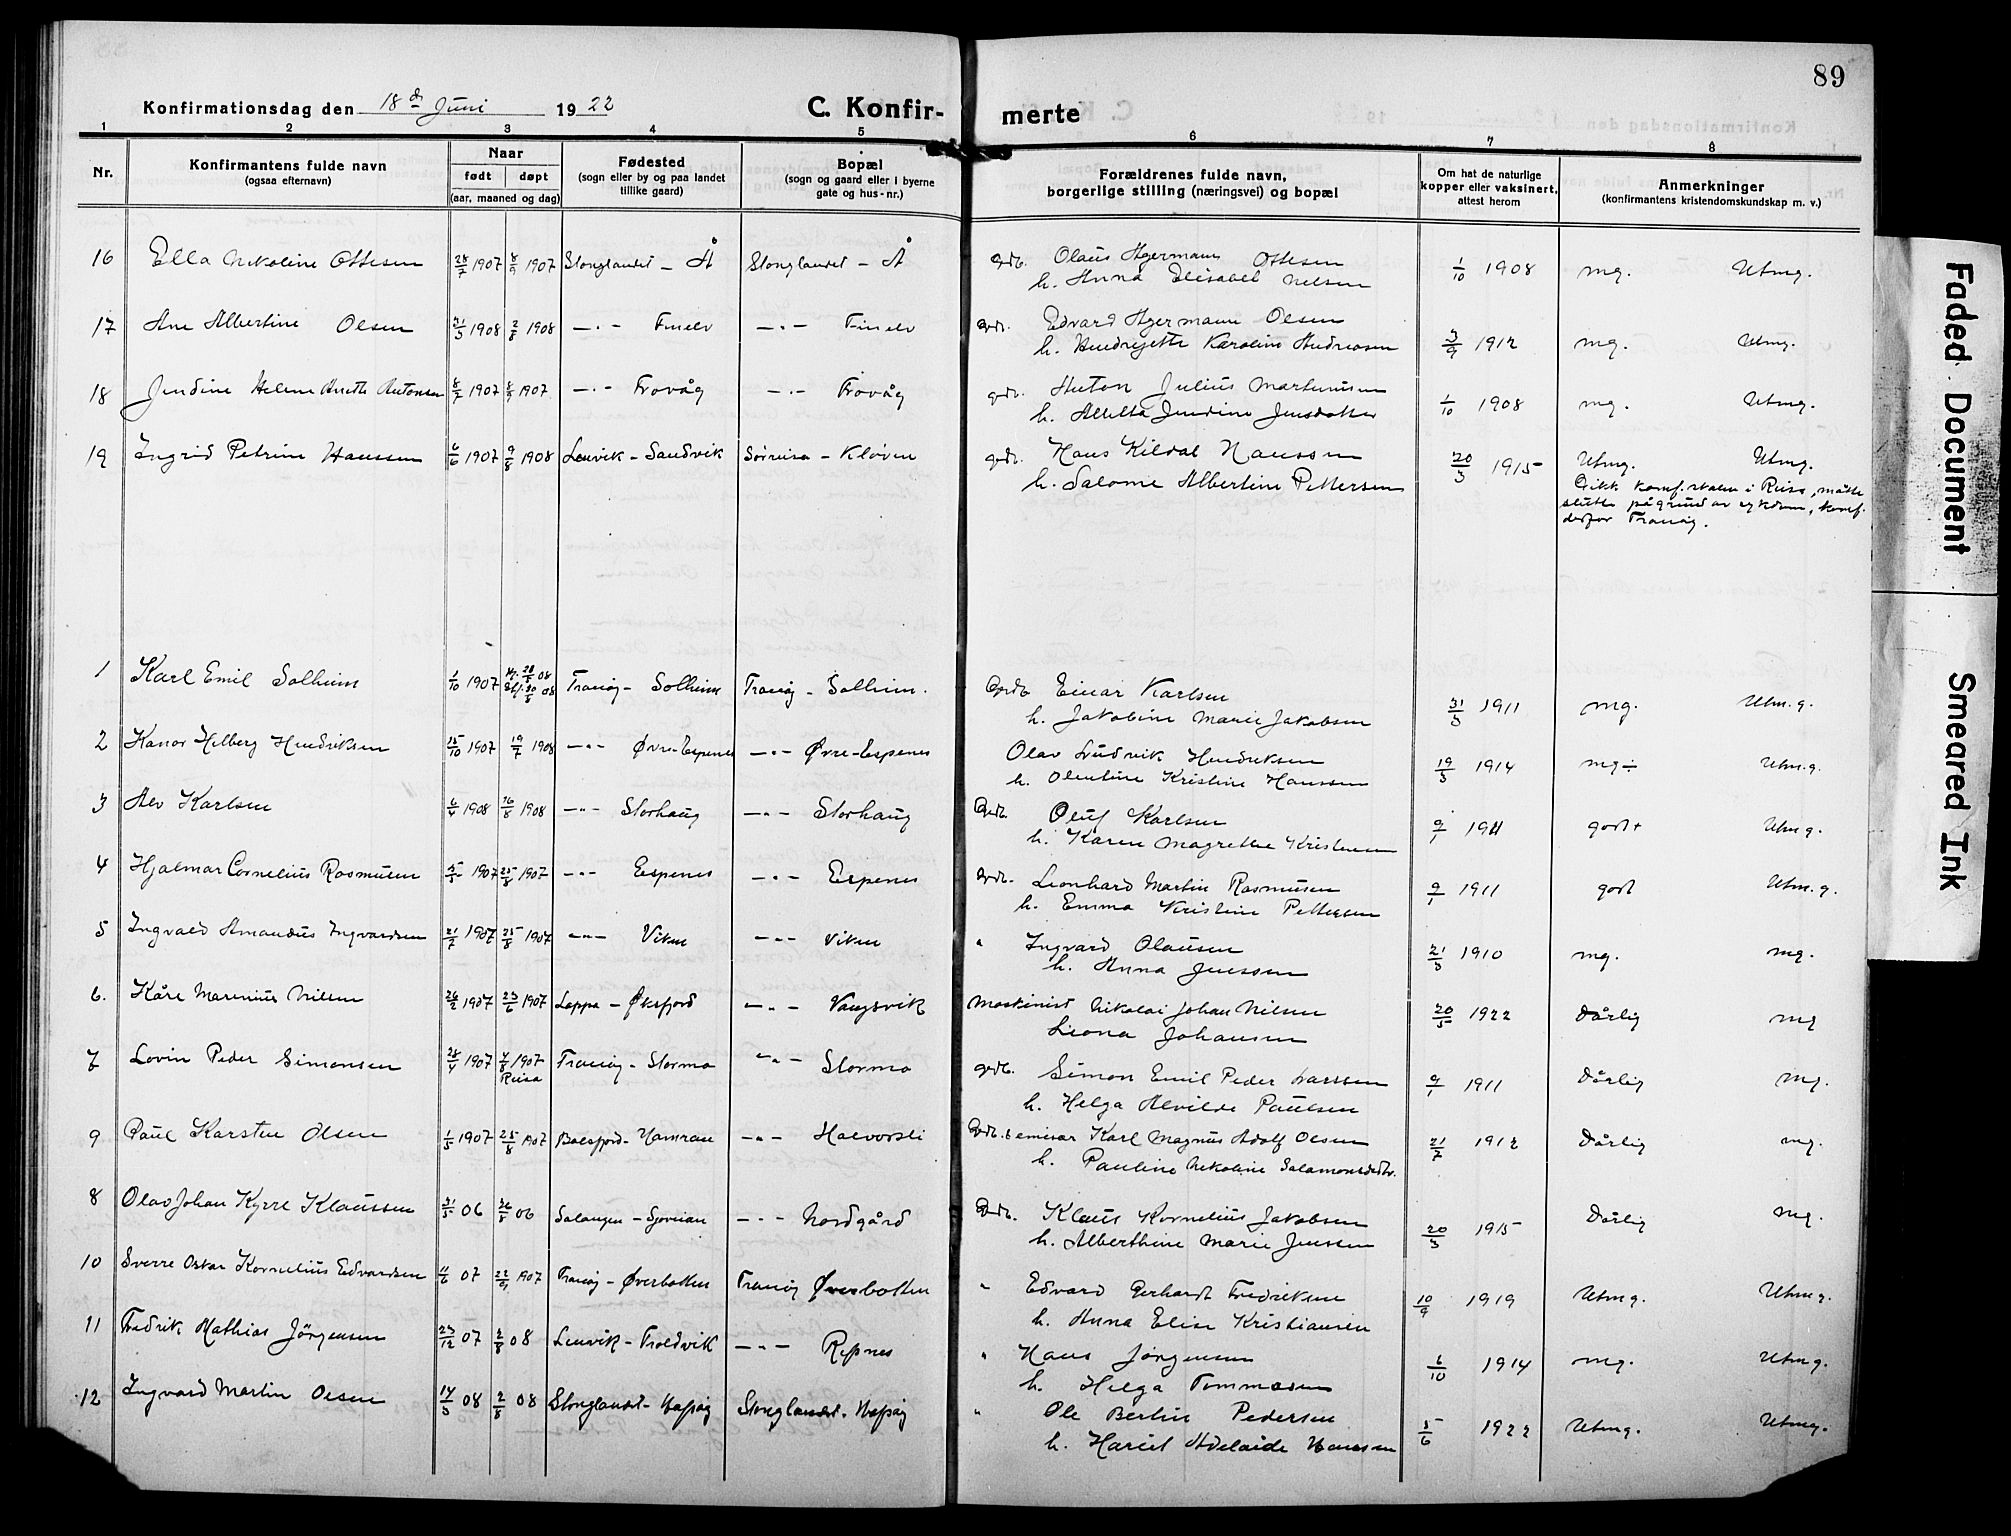 89
Konfirmationsdag den 18de Juni 1922
C. Konfir- merte
1 2 3 4 5 6 7 8
Nr.
Konfirmantens fulde navn
(ogsaa efternavn)
Naar
født døpt
(aar, maaned og dag)
Fødested
(sogn eller by og paa landet
tillike gaard)
Bopæl
(sogn og gaard eller i byerne
gate og hus-nr.)
Forældrenes fulde navn,
borgerlige stilling (næringsvei) og bopæl
Om hat de naturlige
kopper eller vaksinert,
attest herom
Anmerkninger
(konfirmantens kristendomskundskap m. v.)
16 Ella Nikoline Ottesen 28/7 1907 8/9 1907 Stonglandet - Å Stonglandet - Å gdb. Olaus Hgermann Ottesen 1/10 1908 mg. Utmg.
h. Anna Elisabet Nelsen
17 Ane Albertine Olsen 21/3 1908 2/8 1908 -"- Finelv -"- Finelv gdb. Edvard Hgermann Olsen 3/9 1912 mg. Utmg.
h. Hendrijette Karoline Andreasen
18 Jendine Helene Anette Antonsen 8/7 1907 8/9 1907 -"- Frovåg -"- Frovåg gdb. Anton Julius Martinusen 1/10 1908 mg. Utmg.
h. Alletta Jendine Jensdatter
19 Ingrid Petrine Hanssen 6/6 1907 9/8 1908 Lenvik - Sandvik Sørreisa - Kløven gdb. Hans Kildal Hanssen 20/3 1915 Utmg. Utmg.
h. Salome Albertine Pettersen
Gikk konf.skolen i Reisa, måtte
slutte på grund av sykdom, konf.
derfor Tranøy.
1 Karl Emil Solheim 1/10 1907 Hj. 28/5 08 Tranøy - Solheim Tranøy - Solheim. Gdb. Einar Karlsen 31/3 1911 mg. Utm.g.
Stf. 30/8 08
h. Jakobine Marie Jakobsen
2 Kanor Helberg Hendriksen 15/10 1907 19/7 1908 -"- Øvre-Espenes -"- Øvre-Espenes Olav Ludvik Hendriksen 19/3 1914 mg ÷ Utm.g.
h. Olentine Kristine Hanssen
3 Alv Karlsen 6/4 1908 16/8 1908 -"- Storhaug -"- Storhaug Gdb. Oluf Karlsen 9/1 1911 godt + Utm g.
h. Karen Magrethe Kristensen
4 Hjalmar Cornelius Rasmusen 5/5 1907 25/8 1907 -"- Espenes -"- Espenes Gdb. Leonhard Martin Rasmusen 9/1 1911 godt Utm.g.
h. Emma Kristine Pettersen
5 Ingvald Amandus Ingvardsen 21/7 1907 25/8 1907 -"- Viken -"- Viken " Ingvard Olausen 21/3 1910 mg. mg.
h. Anna Jenssen
6. Kåre Marenius Nilsen 26/2 1907 23/6 1907 Loppa - Øksfjord -"- Vangsvik Maskinist Nikolai Johan Nilsen 20/5 1922 Dårlig mg
Leona Johansen
7 Lovin Peder Simonsen 28/4 1907 4/8 1907 Tranøy - Stormo -"- Stormo gdb. Simon Emil Peder Larssen 9/1 1911 Dårlig mg.
Reisa
h. Helga Alvilde Paulsen
9 Paul Karsten Olsen 1/5 1907 25/8 1907 Balsfjord - Namran -"- Halvorsli Gdb. & emisær Karl Magnus Adolf Olsen 21/7 1912 Dårlig mg.
h. Pauline Nikoline Salamonsdatr.
8 Olav Johan Kyrre Klaussen 31/5 06 26/8 06 Salangen - Sjøveian -"- Nordgård Gdb. Klaus Kornelius Jakobsen 20/3 1915 Dårlig mg.
h. Alberthine Marie Jenssen
10 Sverre Oskar Kornelius Edvardsen 11/6 07 22/9 1907 Tranøy - Øverbotten Tranøy Øverbotten " Edvard Gerhardt Fredriksen 10/9 1919 Utmg. Utmg.
h. Anna Elise Kristiansen
11 Fredrik Mathias Jørgensen 23/12 07 2/8 08 Lenvik - Troldvik -"- Refsnes " Hans Jørgensen 6/10 1914 mg. Utmg.
h. Helga Tommasen
12 Ingvard Martin Olsen 14/3 08 2/8 08 Stonglandet - Hofsøy Stonglandet - Hofsøy " Ole Bertin Pedersen 5/6 1922 Utmg. Utmg.
h. Hariet Adelaide Hanssen
Faded Document
Smeared Ink